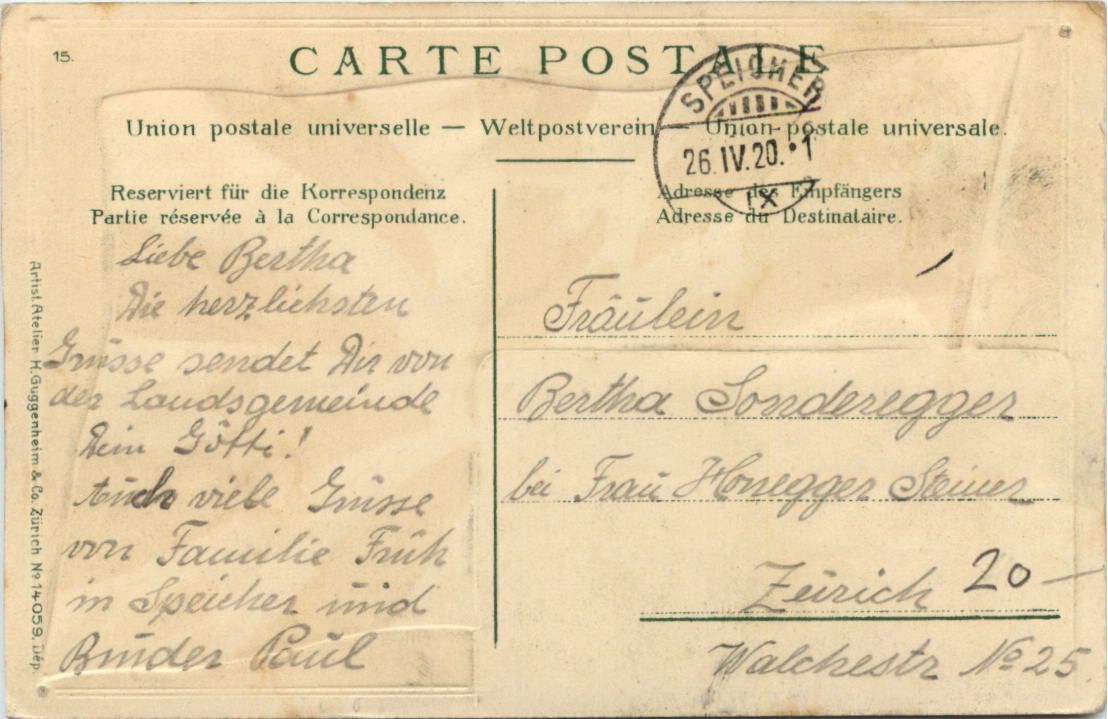 15.
CARTE POSTALE
SPEICHER
26.IV.20.•1
IX
Union postale universelle — Weltpostverein — Union postale universale.
Reserviert für die Korrespondenz
Partie réservée à la Correspondance.
Adresse des Empfängers
Adresse du Destinataire.
Liebe Bertha
Die herzlichsten
Grüsse sendet Dir von
der Landsgemeinde
Dein Götti!
Auch viele Grüsse
von Familie Früh
in Speicher und
Bruder Paul
Fräulein
Bertha Sonderegger
bei Frau Honegger Steiner
Zürich 20
Walchestr No 25
Artist. Atelier H. Guggenheim & Co. Zürich No 14059. Dép.